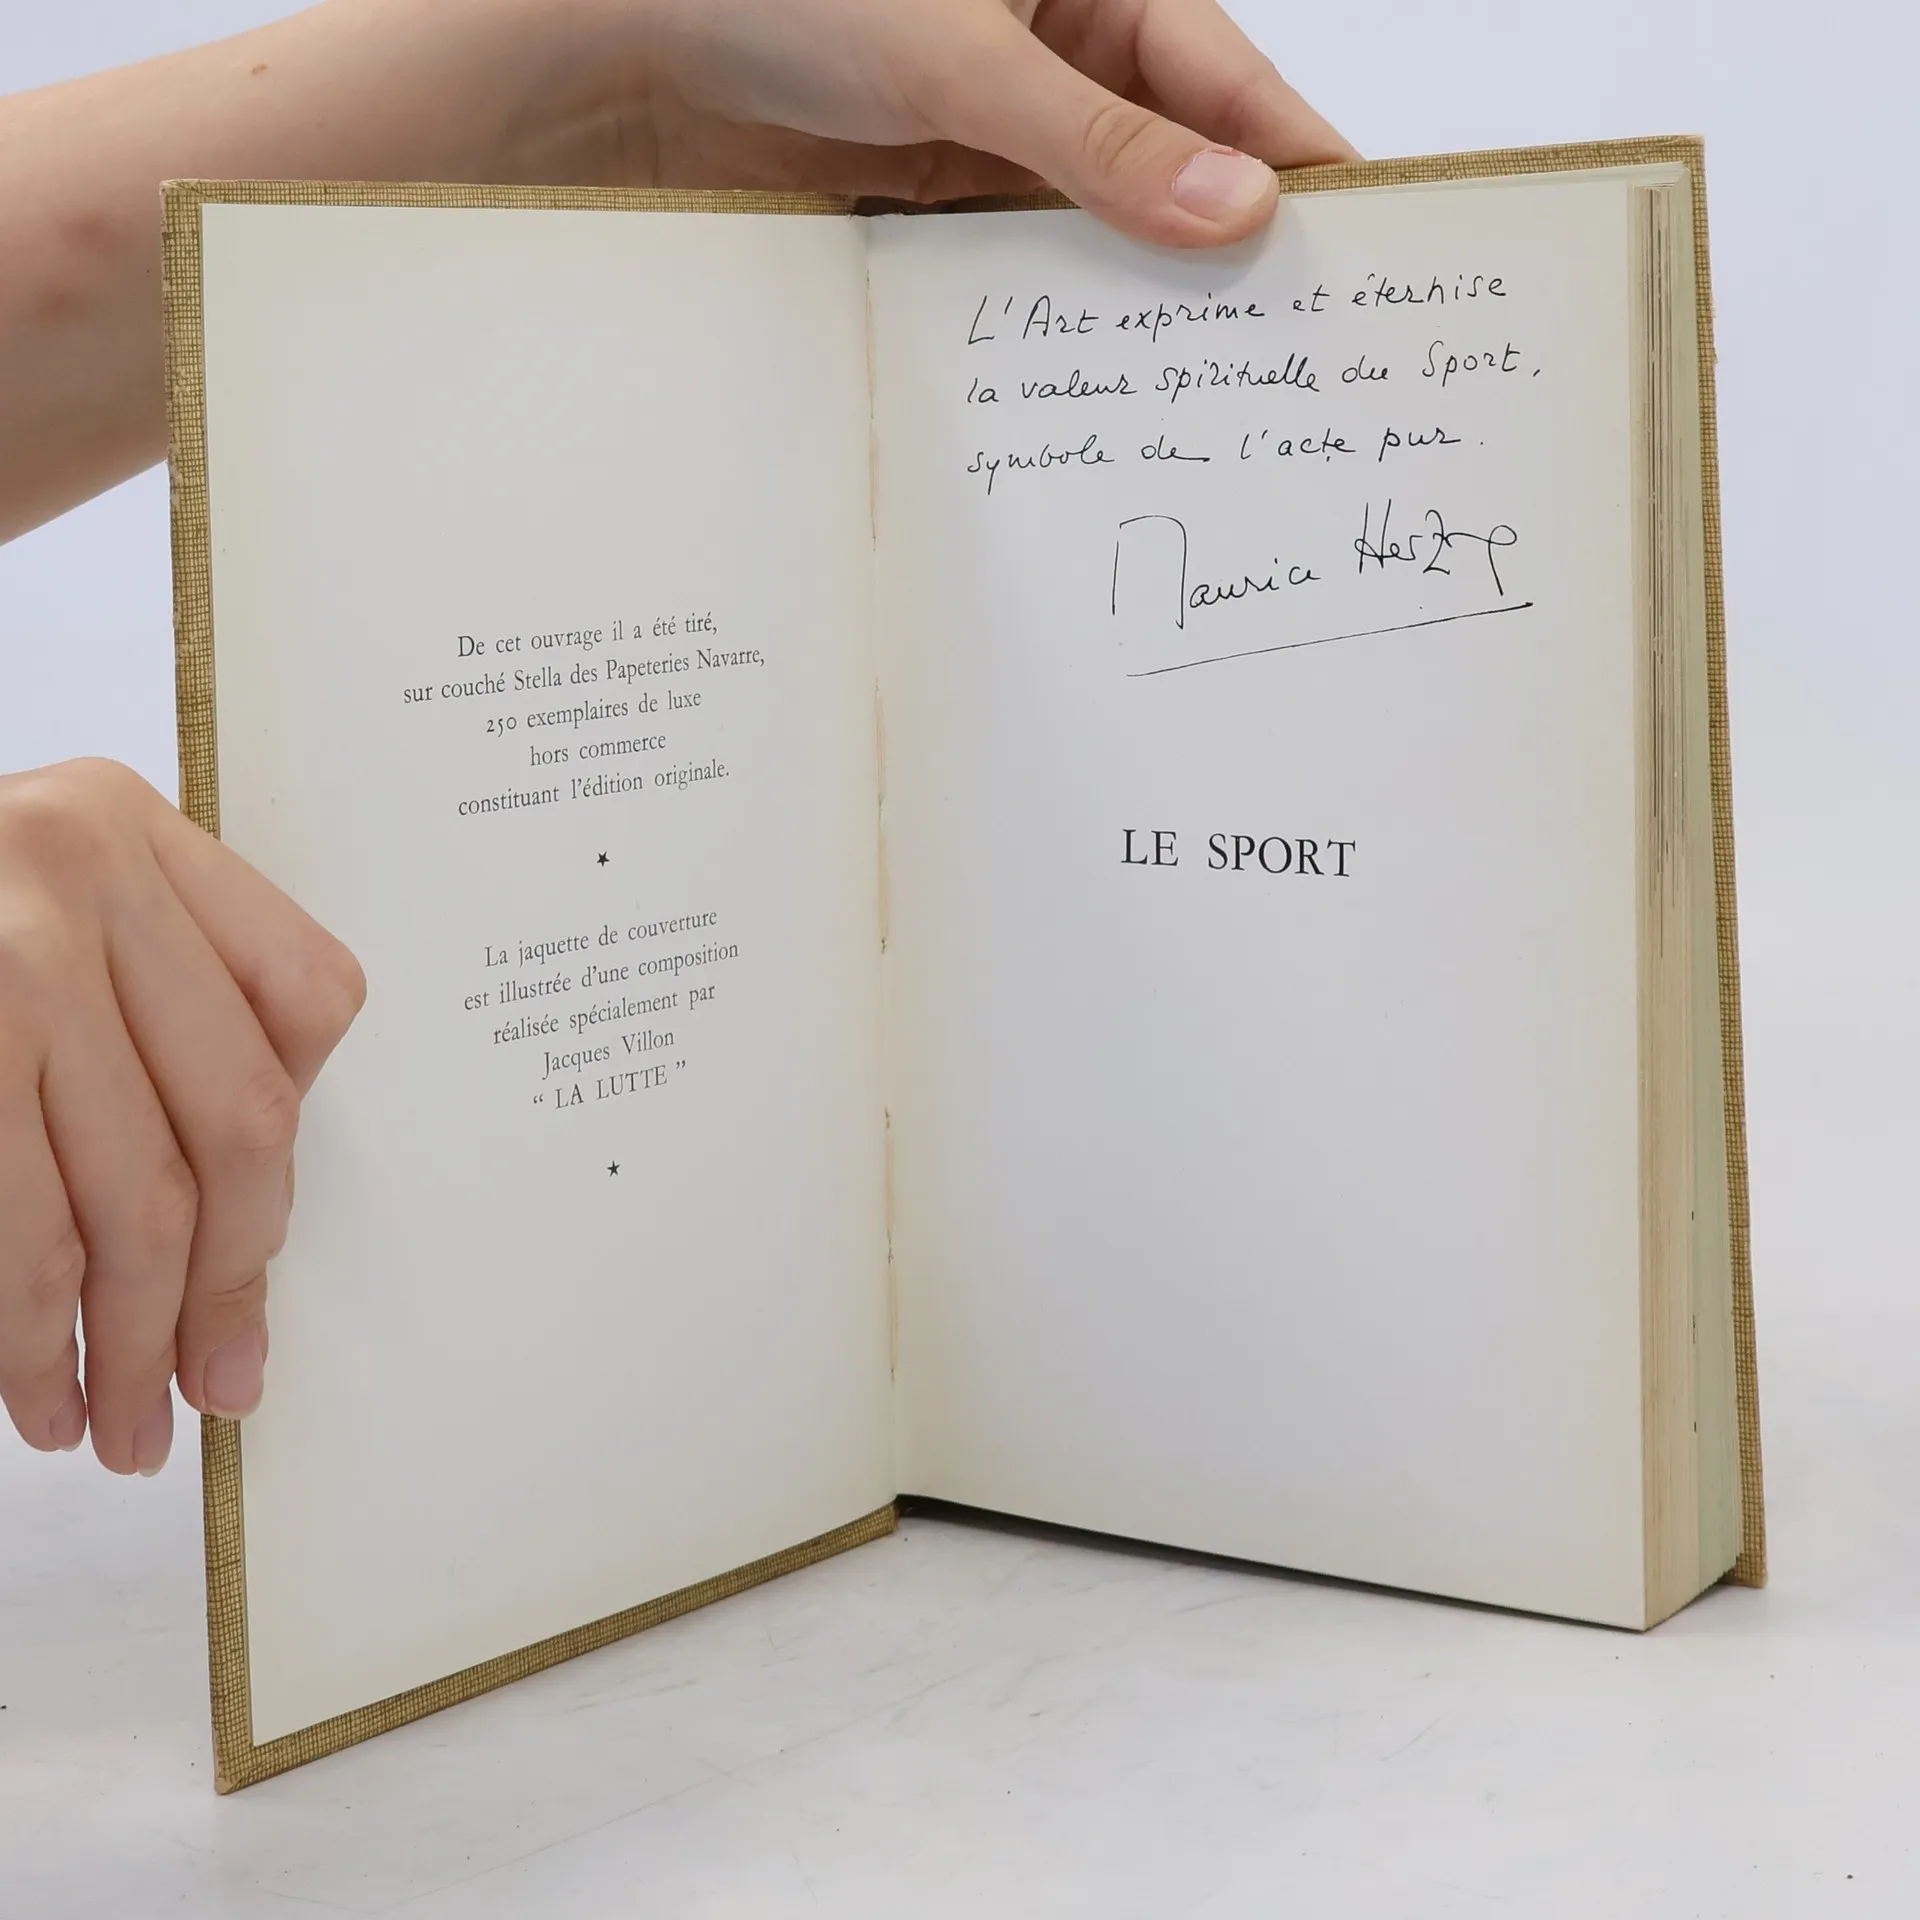 De cet ouvrage il a été tiré,
sur couché Stella des Papeteries Navarre,
250 exemplaires de luxe
hors commerce
constituant l'édition originale.
★
La jaquette de couverture
est illustrée d'une composition
réalisée spécialement par
Jacques Villon
“ LA LUTTE ”
★
L'Art exprime et éternise
la valeur spirituelle du Sport,
symbole de l'acte pur.
Maurice Herzog
LE SPORT